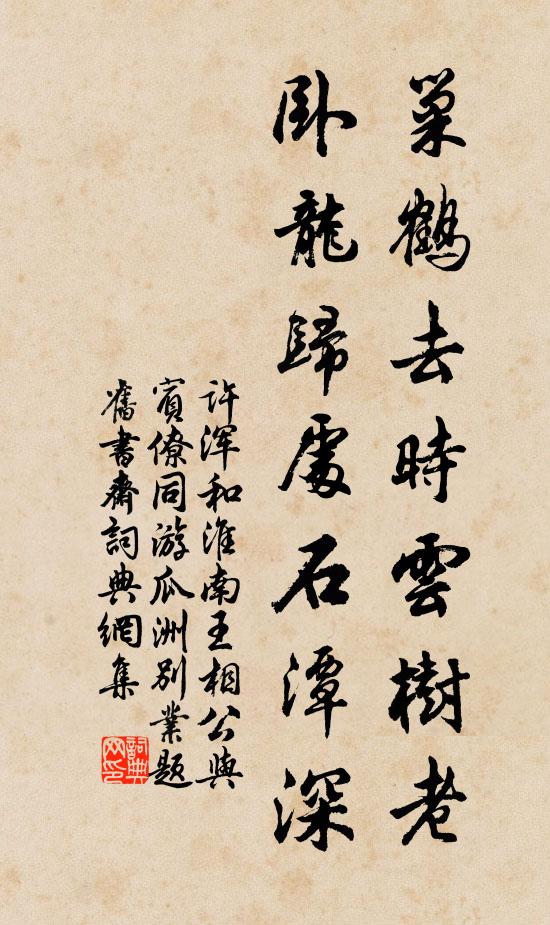 巢鶴去時雲樹老
臥龍歸處石潭深
許浑和淮南王相公與
賓僚同游瓜洲别業題
舊書齋詞典網集
詞典
网印